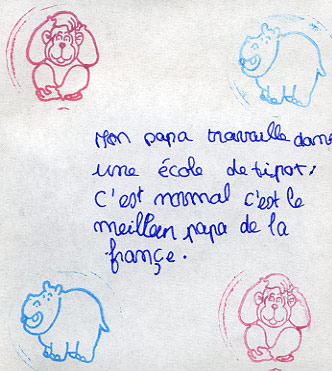 Mon papa travaille dans
une école de tipot,
c'est normal c'est le
meilleur papa de la
françe.